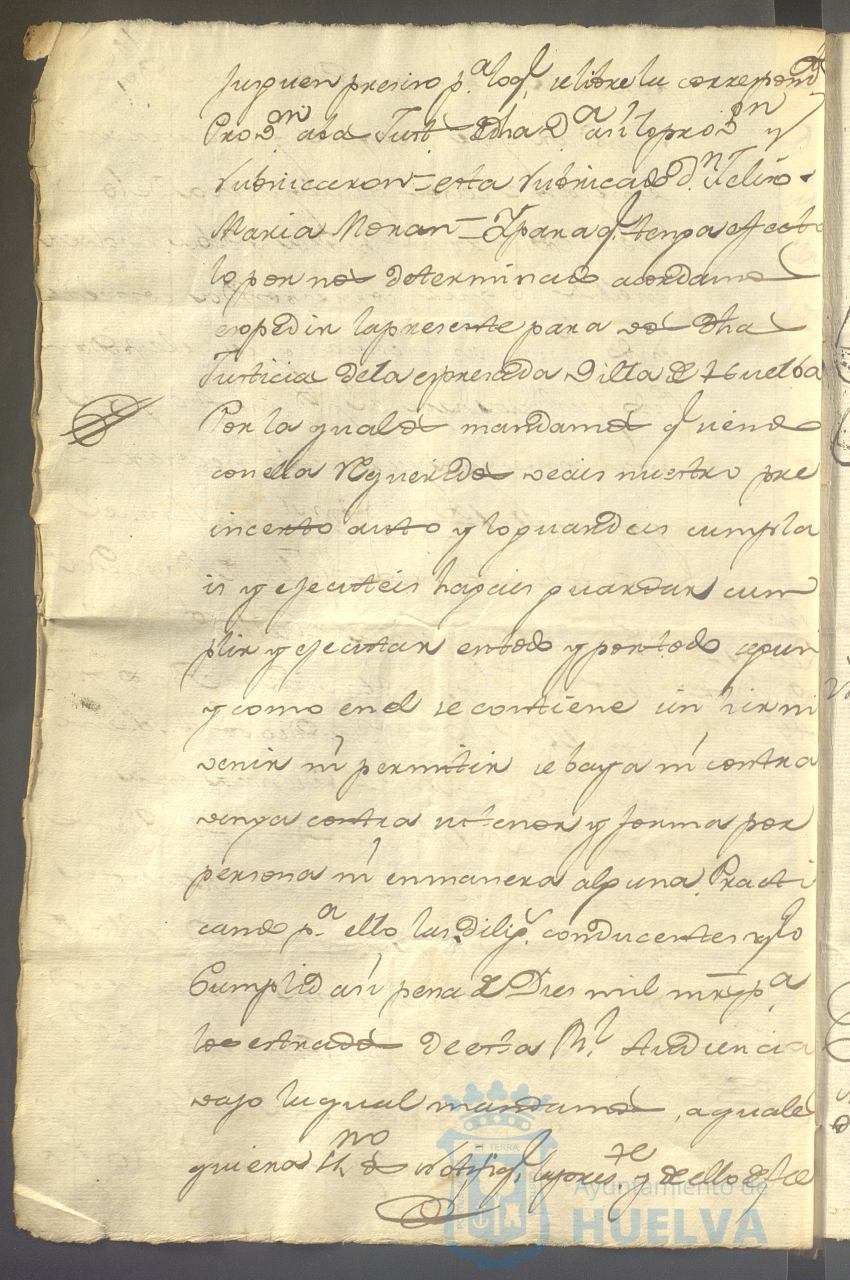 Jusguen preciso p.ª lo q.^l se libre la correspond.^te
Prov.^on a la Just.ª dha V.ª así lo prov.^on y
rubricaron = esta rubricado d.^n
Maria Moran = Y para q.^e tenga efecto
lo por nos determinado acordamos
expedir la presente para vos dha
Justicia de la expresada Villa de Huelba
Por la qual os mandamos q.^e siendo
con ella requeridos veais nuestro pre
incerto auto y lo guardeis cumpla
is y ejecuteis hagais guardar cum
plir y ejecutar en todo y por todo segun
y como en el se contiene sin hir ni
venir ni permitir se baya ni contra
venga contra su tenor y forma por
persona ni en manera alguna Practi
cando p.ª ello las dilig.^s conducentes y lo
Cumplid así pena de Dies mil mrs p.ª
los estrados de esta R.^l Audiencia
vajo la qual mandamos, a quales
quiera Ss.^no os notifiq.^e la pres.^te y de ello de fee
Ayuntamiento de
HUELVA